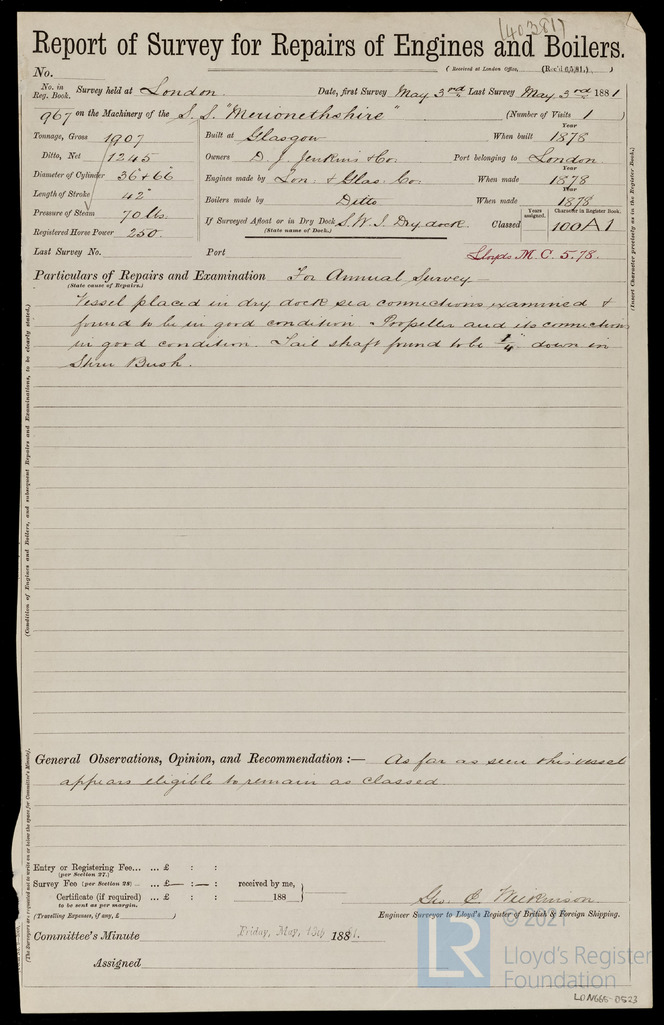 (40381)
Report of Survey for Repairs of Engines and Boilers.
No. (Received at London Office,
No. in Reg. Book. Survey held at London Date, first Survey May 3rd Last Survey May 3rd 1881
967 on the Machinery of the S.S. "Merionethshire" (Number of Visits 1)
Tonnage, Gross 1907 Built at Glasgow When built Year 1878
Ditto, Net 1245 Owners D. J. Jenkins & Co. Port belonging to London
Diameter of Cylinder 36 & 66 Engines made by Lon & Glas. Co. When made 1878
Length of Stroke 42" Boilers made by Ditto When made Year 1878
Pressure of Steam 70 lbs. If Surveyed Afloat or in Dry Dock S.W.I. Dry dock. Classed Years assigned. Character in Register Book. 100A1
(State name of Dock.)
Registered Horse Power 250.
Last Survey No. Port Lloyds M.C. 5.78.
Particulars of Repairs and Examination For Annual Survey—
(State cause of Repairs.)
Vessel placed in dry dock sea connections examined &
found to be in good condition. Propeller and its connections
in good condition. Tail shaft found to be 1/4" down in
Stern Bush.
(Condition of Engines and Boilers, and subsequent Repairs and Examinations, to be clearly stated.)
(Insert Character precisely as in the Register Book.)
General Observations, Opinion, and Recommendation:— As far as seen this vessel
appears eligible to remain as classed.
(The Surveyors are requested not to write on or below the space for Committee's Minute).
Entry or Registering Fee... ... £ : :
(per Section 27.)
Survey Fee (per Section 28) ... ... £— : — : received by me,
Certificate (if required) ... £ : : 188
to be sent as per margin.
(Travelling Expenses, if any, £ )
Engineer Surveyor to Lloyd's Register of British & Foreign Shipping.
Committee's Minute Friday, May, 13th 1881.
Assigned
© 2021
LR
Lloyd's Register
Foundation
LON665-0523